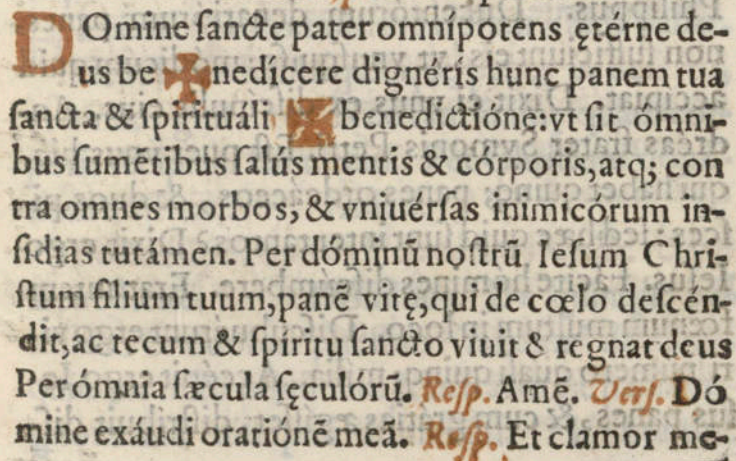 DOmine sancte pater omnípotens ętérne de-
us be ✠ nedícere dignéris hunc panem tua
sancta & spirituáli ✠ benedictióne:vt sit ómni-
bus sumẽtibus salús mentis & córporis,atq; con
tra omnes morbos, & vniuérsas inimicórum in-
sidias tutámen. Per dóminũ nostrũ Iesum Chri-
stum filium tuum,panẽ vitę,qui de cœlo descén-
dit,ac tecum & spíritu sancto viuit & regnat deus
Per ómnia sæcula sęculórũ. Resp. Amẽ. Vers. Dó
mine exáudi oratiónẽ meã. Resp. Et clamor me-